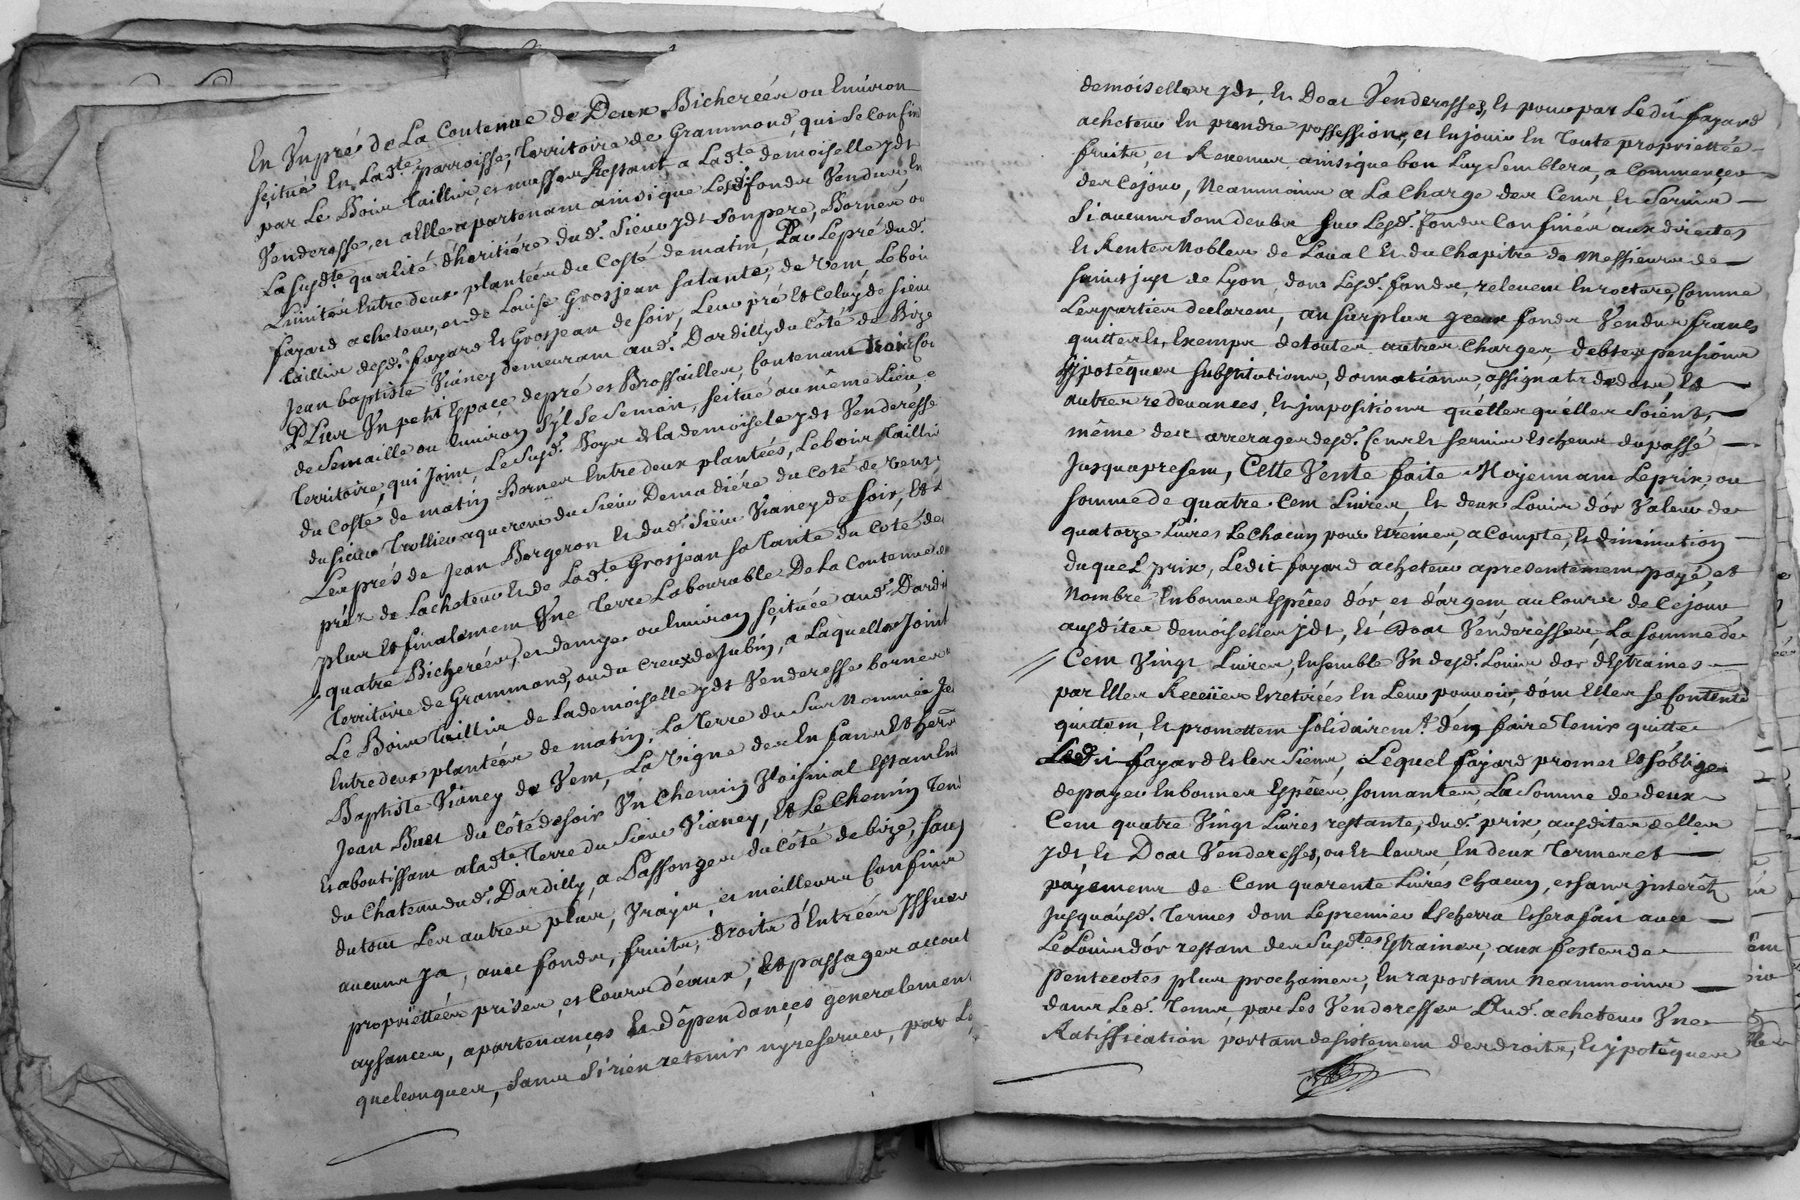 En Vn pré de La Contenue de Deux Bicherées ou Environ
scitué En Lad.te parroisse, Territoire de Grammond, qui se confin
par Le Bois Taillis, et masses Restant a Lad.te demoiselle jdt
Venderesse, et a Elle apartenant ainsi que Lesd. fonds Vendus, En
La susd.te qualité d'héritière dud. Sieur jdt son pere, Bornes ou
Limites Entre deux plantées du Costé de matin, Par Le pré dud.
fayard acheteur, et de Louise Grosjean sa tante, de vent Le bois
taillis desd. fayard Et Grosjean de soir, Leur pré Et Celuy de Sieur
Jean baptiste Vianey demeurant aud. Dardilly du Côté de Bize
Plus Vn petit Espace de pré et Brossailles, Contenant trois Cou
de Semaille ou Environ Scitué au même Lieu, e
Territoire, qui Joint, Le susd. Et la demoiselle jdt Venderesse
du Costé de matin Bornes Entre deux plantées, Le bois Tailli
du sieur Trollieur aquereur du Sieur Demadiére du Coté de Vent
Les prés de Jean Bergeron Et dud. Siëur Vianey de soir, Et L
prés de Lacheteur Et de Lad.te Grosjean sa Tante du Coté de
plus Et finalement Vne Terre Labourable De La Contenue de
quatre Bicherées, et demye ou Environ scituée aud. Dardil
Territoire de Grammond, ou du Creux de Jubin, a Laquelle Joint
Le Bois Taillis de La demoiselle jdt Venderesse bornes
Entre deux plantées de matin, La Terre du Sus Nommé Je
Baptiste Vianey de Vent, La Vigne des Enfants Et her
Jean Buet du Côté de soir Vn Chemin Voisinal Estant Ent
Et aboutissant a lad.te Terre du Sieur Vianey, Et Le Chemin Ten
du Chateau dud. Dardilly, a du Côté de bize, sauf
du tout Les autres plus, Vrays, et meilleurs Confins
aucuns ya, avec fonds, fruits, droits d'Entrées Yssues
propriëttées prises, et Cours déaux, Et passages accout
aysances, apartenances Et dépendances generalement
quelconques, sans Si rien retenir ny reserver, par L
demoiselles jdt, Et Doat Venderesses, Et pour par Ledit fayard
acheteur En prendre possession, et En jouir En Toute proprietée
fruits et Revenus ainsi que bon Luy Semblera, a Commencer
des Cejour, Neammoins a La Charge des Cens, Et Servis
Si aucuns sont deubs sur Lesd. fonds Confinés aux directes
Et Rentes Nobles de Loual Et du Chapitre de Messieurs de
Saint just de Lyon, dont Lesd. fonds, relevent En roture, Comme
Les parties declarent, au surplus fonds Vendus francs
quittes Et, Exempts de toutes autres Charges, debtes pensions
ypotêques substitutions, donnations, assignats de dote, Et
autres redevances, Et impositions quélles quélles Soiént,
même des arrerages desd. Cens Et servis Escheus du passé
Jusqu'apresent, Cette Vente faite Moyennant Le prix ou
somme de quatre Cent Livres, Et deux Louis d'or Valeur de
quatorze Livres Le chacun pour Etreines, a Compte, Et diminution
duquel prix, Ledit fayard acheteur a presentement payé, et
Nombré En bonnes Espêces d'or, et d'argent, au Cours de Cejour
ausdites demoiselles jdt, Et Doat Venderesses, La somme de
Cent Vingt Livres, Ensemble Vn desd. Louis d'or dEstraines
par Elles Receües Et retirées En Leur pouvoir, dont Elles se Contente
quittent, Et promettent solidairem.t d'en faire Tenir quitte
Ledit fayard Et les Siens, Lequel fayard promet Et s'oblige
de payer En bonnes Espêces, sonnantes, La Somme de deux
Cent quatre Vingt Livres restante, dud. prix, ausdites delles
jdt Et Doat Venderesses, ou Et leurs, En deux Termes et
payements de Cent quarente Livrés chacun, et sans interêts
Jusqu'ausd. Termes dont Le premier Escherra Et sera fait avec
Le Louis d'or restant des Susd.tes Estraines, aux festes de
pentecotes plus prochaines, En raportant Neammoins
dans Led. Tems, par Les Venderesses Aud. acheteur Vne
Ratiffication portant desistement des droits, Et ypotêques